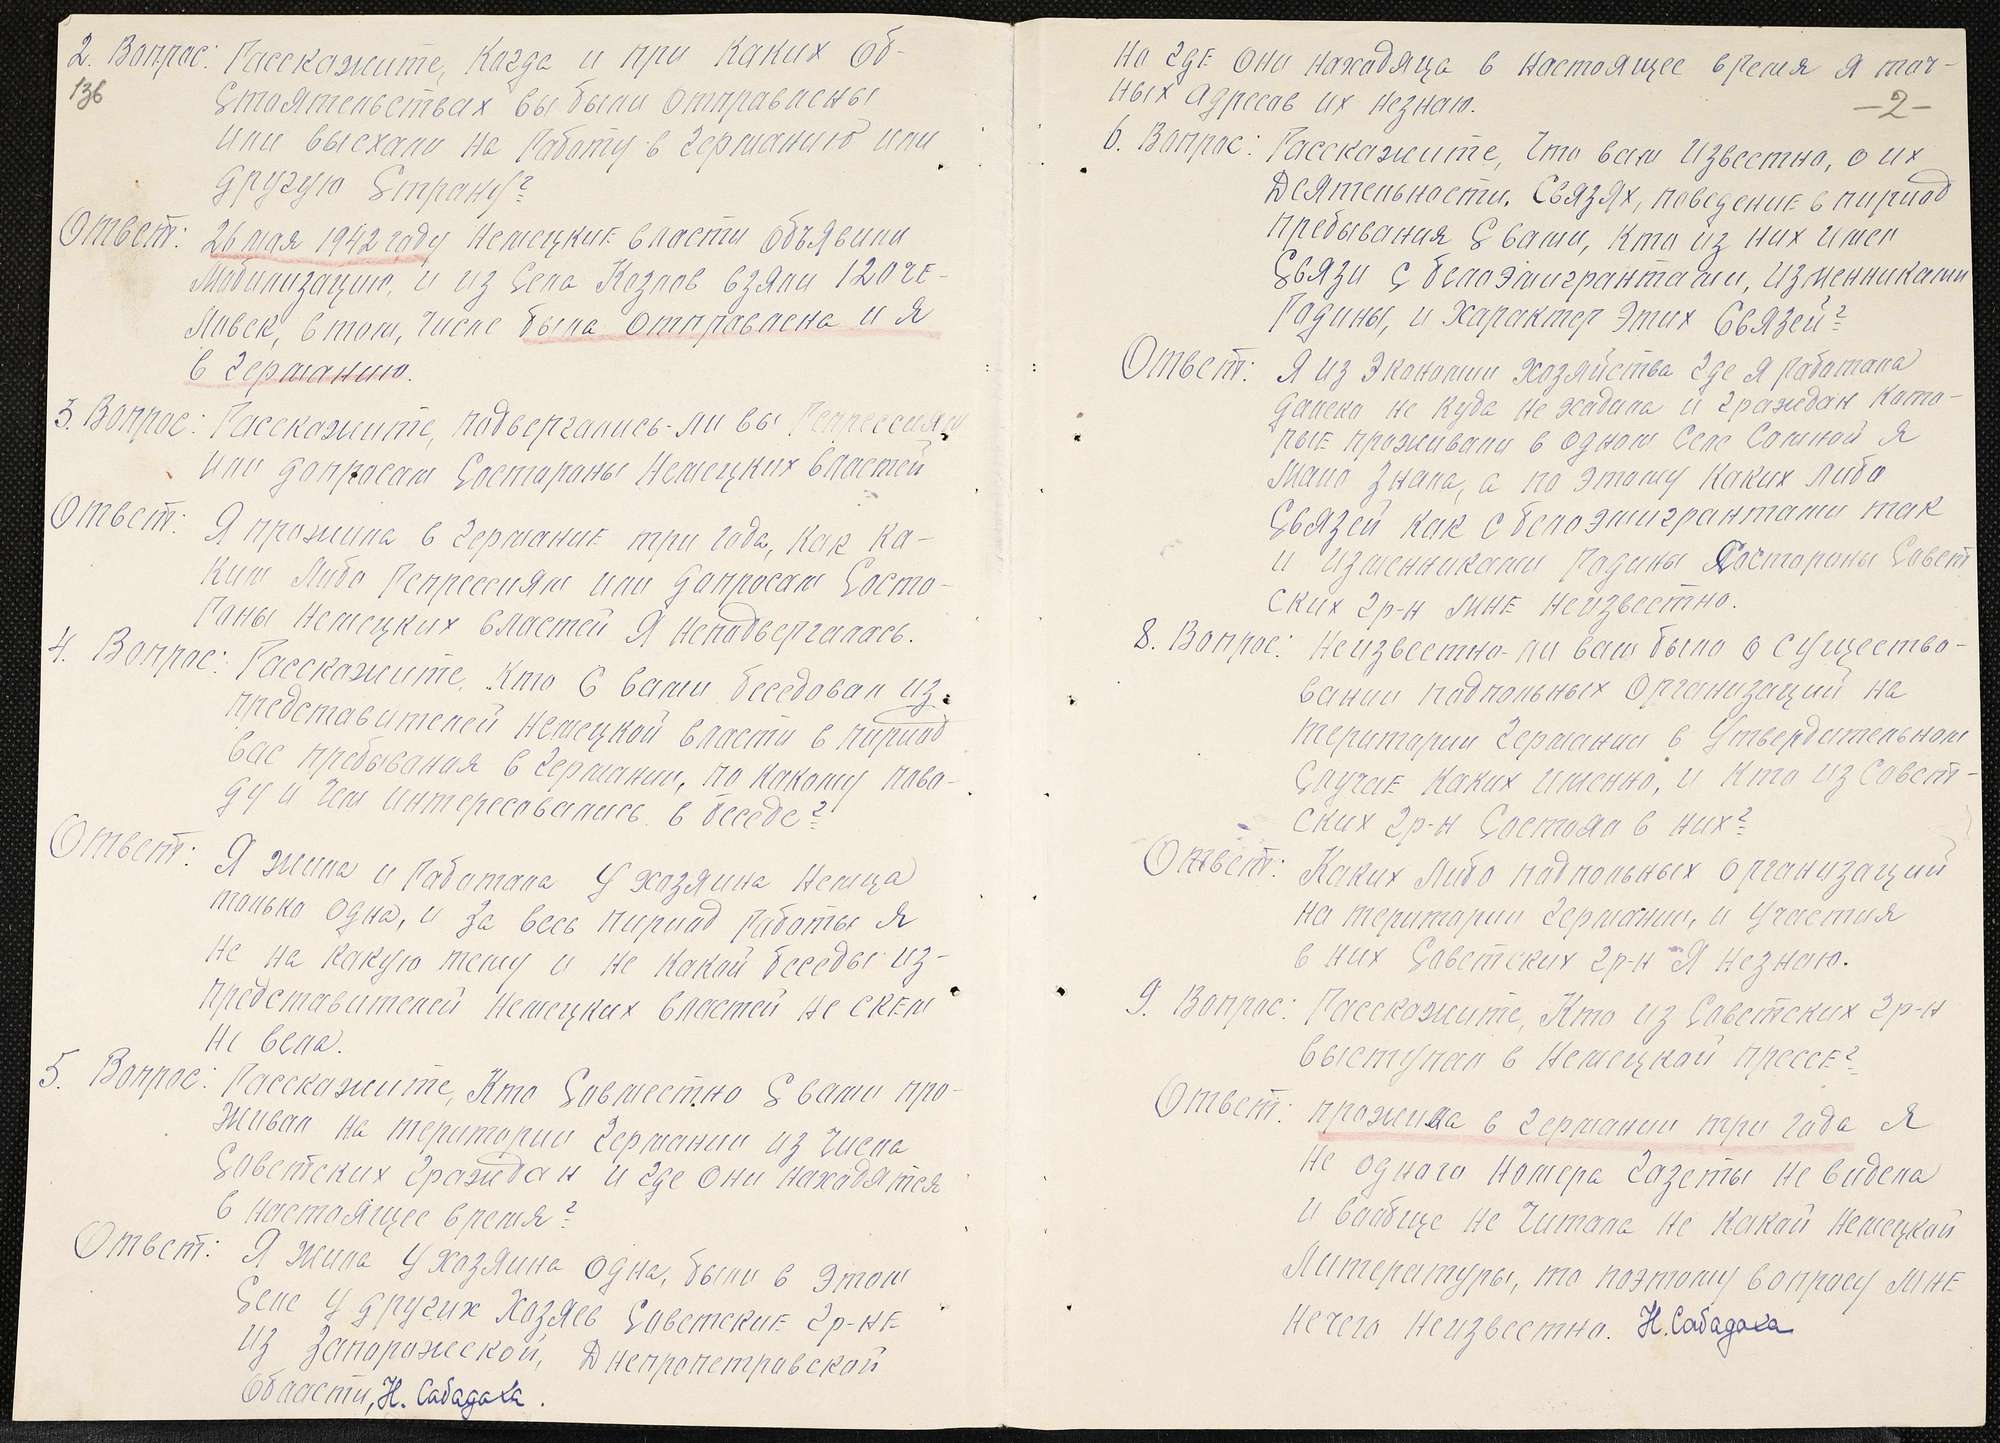 2. Вопрос: Расскажите, Когда и при каких Об-
136
стоятельствах вы были отправлены
или выехали на Работу в Германию или
другую Страну?
Ответ: 26 мая 1942 году Немецкие власти Объявили
Мобилизацию, и из Села Козлов взяли 120 че-
ловек, в том, числе была отправлена и я
в Германию.
3. Вопрос: Расскажите, подвергались-ли вы Репрессиям
или допросам Состораны Немецких властей
Ответ: Я прожила в Германие три года, как ка-
ким либо Репрессиям или допросам Состо-
раны Немецких властей Я неподвергалась.
4. Вопрос: Расскажите, Кто С вами беседовал из
представителей Немецкой власти в пириод
вас пребывания в Германии, по какому пово-
ду и Чем интересовались в беседе?
Ответ: Я жила и Работала У хозяина Немца
только одна, и За весь пириод Работы я
Не на какую тему и не какой беседы из-
представителей Немецких властей не скем
Не вела.
5. Вопрос: Расскажите, Кто Совместно С вами про-
живал на територии Германии из Числа
Советских Граждан и где Они находятся
в настоящее время?
Ответ: Я жила У хозяина Одна, были в этом
Селе У других Хозяев Советские гр-не
из Запорожской, Днепропетровской
Области, Н. Сабадаха.
но где Они находяца в настоящее время я точ-
ных Адресов их незнаю.
-2-
6. Вопрос: Расскажите, Что вам Известно, о их
Деятельности, Связях, поведение в пириод
пребывания С вами, кто из них имел
Связи С белоэмигрантами, Изменниками
Родины, и Характер Этих Связей?
Ответ: Я из Экономии хозяйства где я Работала
Далеко не куда не ходила и граждан кото-
рые проживали в одном Селе Сомной я
Мало Знала, а по этому каких либо
Связей как с белоэмигрантами так
и изменниками Родины Состораны Совет
ских гр-н мне неизвестно.
8. Вопрос: Неизвестно-ли вам было о существо-
вании подпольных Организаций на
територии Германии в Утвердительном
Случае каких именно, и кто из Совет-
ских гр-н Состоял в них?
Ответ: Каких Либо подпольных организаций
на територии Германии, и Участия
в них Советских гр-н Я незнаю.
9. Вопрос: Расскажите, Кто из Советских гр-н
выступал в Немецкой прессе?
Ответ: прожила в Германии три года я
не одного Номера Газеты не видела
и ваабще не Читала не какой немецкой
Литературы, то поэтому вопросу мне
нечего неизвестно. Н. Сабадаха